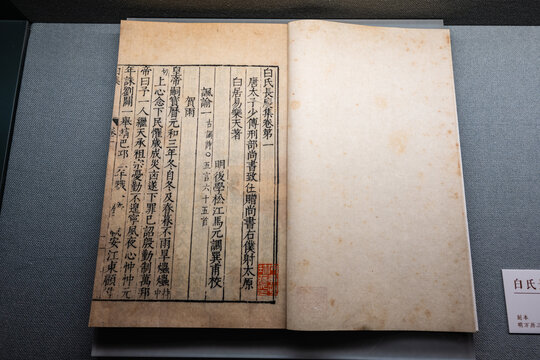 白氏長慶集卷第一
唐太子少傅刑部尚書致仕贈尚書右僕射太原
白居易樂天著
明後學松江馬元調巽甫校
諷諭一 古調詩 五言 六十五首
賀雨
皇帝嗣寶曆元和三年冬自冬及春暮不雨旱爞爞
上心念下民懼歲成災凶遂下罪己詔殷勤制萬邦
帝曰予一人繼天承祖宗憂勤不遑寧夙夜心忡忡元
年誅劉闢一舉靖巴邛二年戮
安江東顧
白氏
明万历